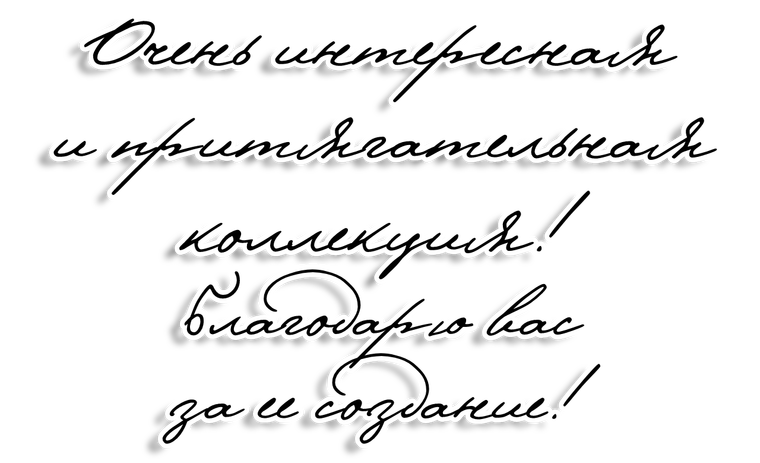 Очень интересная
и притягательная
коллекция!
Благодарю вас
за ее создание!